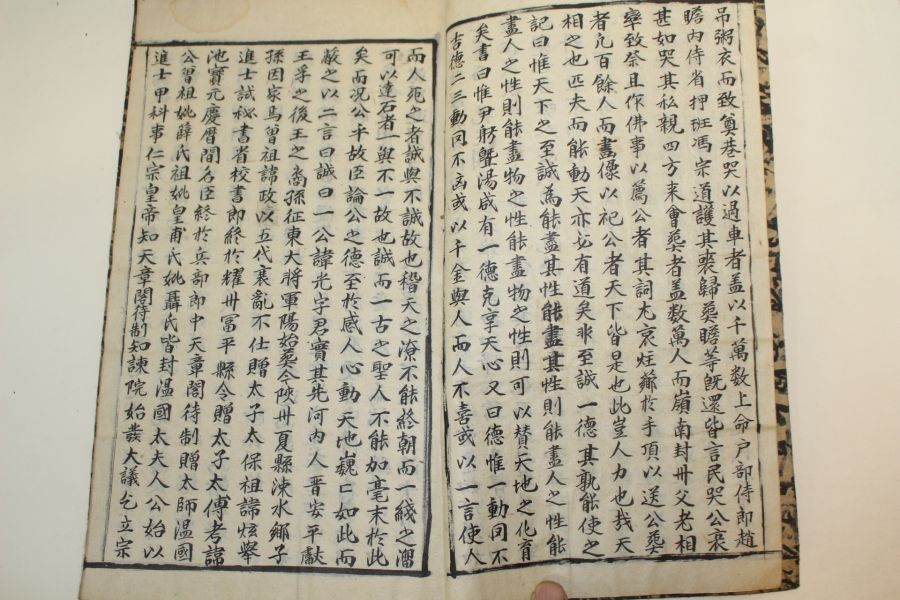 吊粥衣而致奠巷哭以過車者盖以千萬数上命户部侍郎趙
瞻內侍省押班馮宗道護其喪歸葬瞻等既還皆言民哭公哀
甚如哭其私親四方来會葬者盖数萬人而嶺南封卅父老相
率致祭且作佛事以薦公者其詞尤哀炷薌於手頂以送公葬
者凢百餘人而畫像以祀公者天下皆是也此豈人力也㦲天
相之也匹夫而能動天亦必有道矣非至誠一德其孰能使之
記曰惟天下之至誠為能盡其性能盡其性則能盡人之性能
盡人之性則能盡物之性能盡物之性則可以賛天地之化育
矣書曰惟尹躬曁湯咸有一德克享天心又曰德惟一動罔不
吉德二三動罔不凶或以千金與人而人不喜或以一言使人
而人死之者誠與不誠故也稽天之潦不能終朝而一綫之溜
可以達石者一與不一故也誠而一古之聖人不能加毫末於此
矣而况公乎故臣論公之德至於感人心動天地巍〻如此而
蔽之以二言曰誠曰一公諱光字君實其先河內人晋安平獻
王孚之後王之裔孫征東大将軍陽始葬今陜卅夏縣涑水鄉子
孫因家焉曽祖諱政以五代衰亂不仕贈太子太保祖諱炫舉
進士試秘書省校書郎終於耀卅冨平縣令贈太子太傅考諱
池寶元慶曆間名臣終於兵部郎中天章閣待制贈太師温國
公曽祖妣薛氏祖妣皇甫氏妣聶氏皆封温國太夫人公始以
進士甲科事仁宗皇帝知天章閣待制知諫院始發大議乞立宗